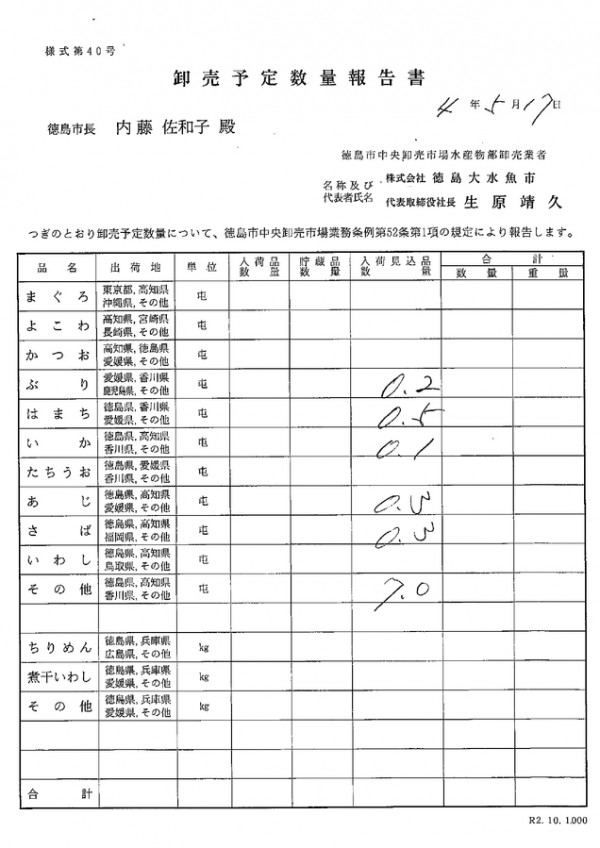 様式第40号
卸売予定数量報告書
4年5月17日
徳島市長 内藤 佐和子 殿
徳島市中央卸売市場水産物部卸売業者
名称及び 株式会社 徳島大水魚市
代表者氏名 代表取締役社長 生原靖久
つぎのとおり卸売予定数量について、徳島市中央卸売市場業務条例第52条第1項の規定により報告します。
品名 出荷地 単位 入荷品数量 貯蔵品数量 入荷見込品数量 合計
数量 重量
まぐろ 東京都, 高知県 屯
沖縄県, その他
よこわ 高知県, 宮崎県 屯
長崎県, その他
かつお 高知県, 徳島県 屯
愛媛県, その他
ぶり 愛媛県, 香川県 屯 0.2
鹿児島県, その他
はまち 徳島県, 香川県 屯 0.5
愛媛県, その他
いか 徳島県, 高知県 屯 0.1
香川県, その他
たちうお 徳島県, 愛媛県 屯
香川県, その他
あじ 徳島県, 高知県 屯 0.3
愛媛県, その他
さば 徳島県, 高知県 屯 0.3
福岡県, その他
いわし 徳島県, 高知県 屯
鳥取県, その他
その他 徳島県, 高知県 屯 7.0
香川県, その他
ちりめん 徳島県, 兵庫県 kg
広島県, その他
煮干いわし 徳島県, 兵庫県 kg
愛媛県, その他
その他 徳島県, 兵庫県 kg
愛媛県, その他
合計
R2. 10. 1,000